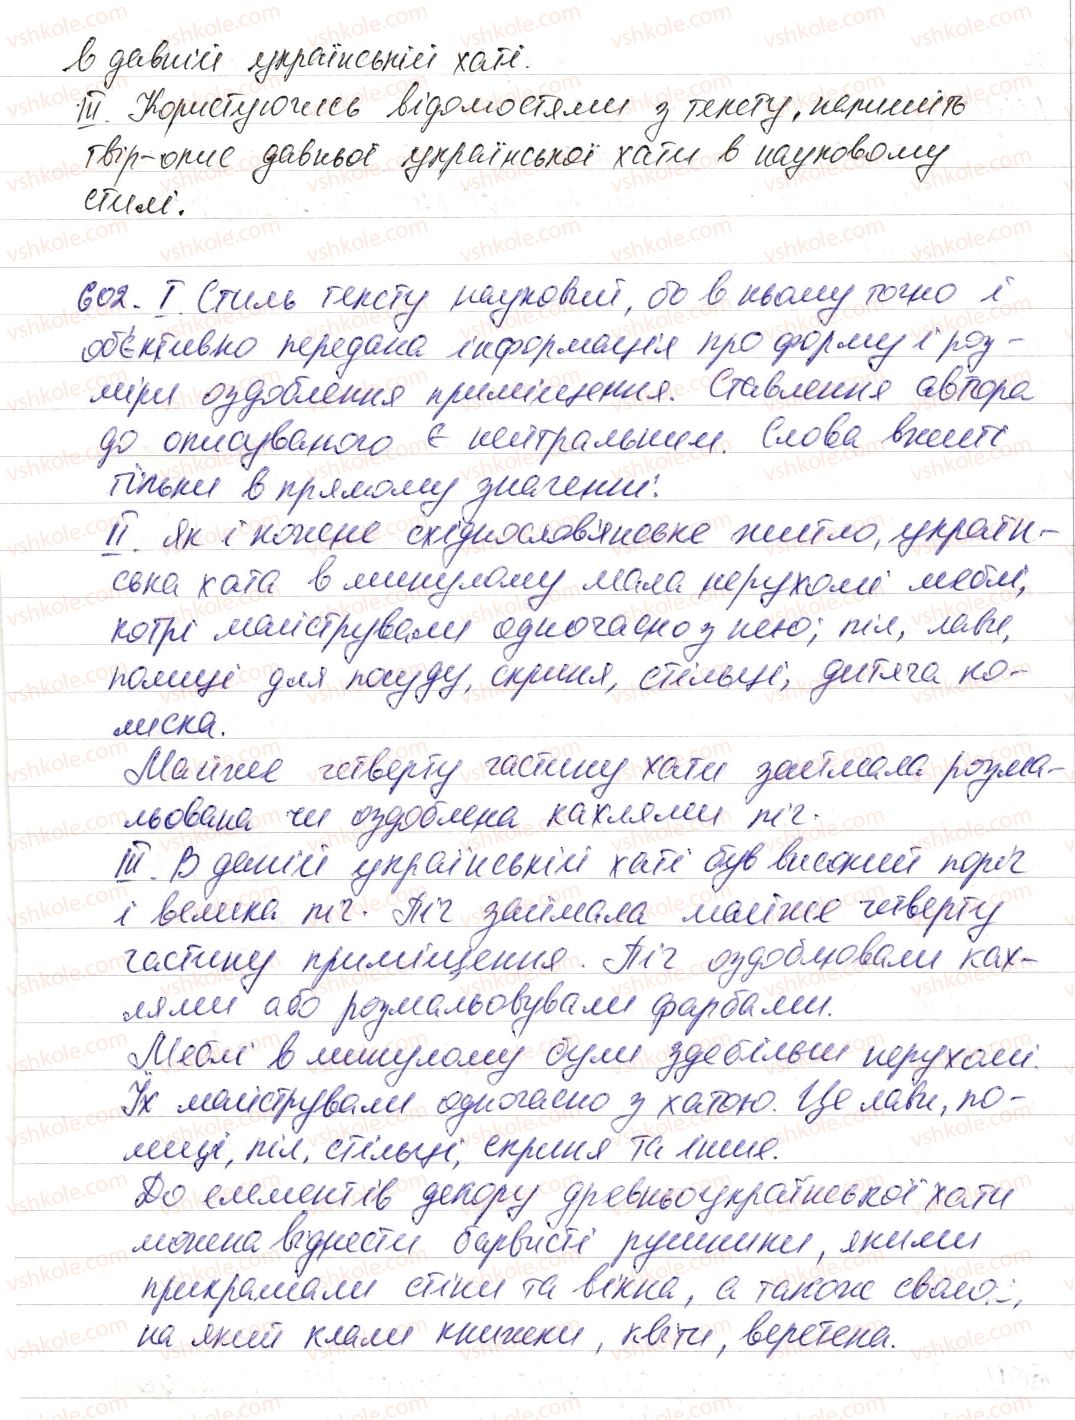 в давній українській хаті.
III. Користуючись відомостями з тексту, напишіть
твір-опис давньої української хати в науковому
стилі.
602. I. Стиль тексту науковий, бо в ньому точно і
об'єктивно передана інформація про форму і роз-
міри оздоблення приміщення. Ставлення автора
до описуваного є нейтральним. Слова вжиті
тільки в прямому значенні.
II. Як і кожне східнослов'янське житло, україн-
ська хата в минулому мала нерухомі меблі,
котрі майстрували одночасно з нею; піл, лави,
полиці для посуду, скриня, стільці, дитяча ко-
лиска.
Майже четверту частину хати займала розма-
льована чи оздоблена кахлями піч.
III. В даній українській хаті був високий поріг
і велика піч. Піч займала майже четверту
частину приміщення. Піч оздоблювали ках-
лями або розмальовували фарбами.
Меблі в минулому були здебільш нерухомі.
Їх майстрували одночасно з хатою. Це лави, по-
лиці, піл, стільці, скриня та інше.
До елементів декору древньоукраїнської хати
можна віднести барвисті рушники, якими
прикрашали стіни та вікна, а також сволок,
на який клали книжки, квіти, веретена.